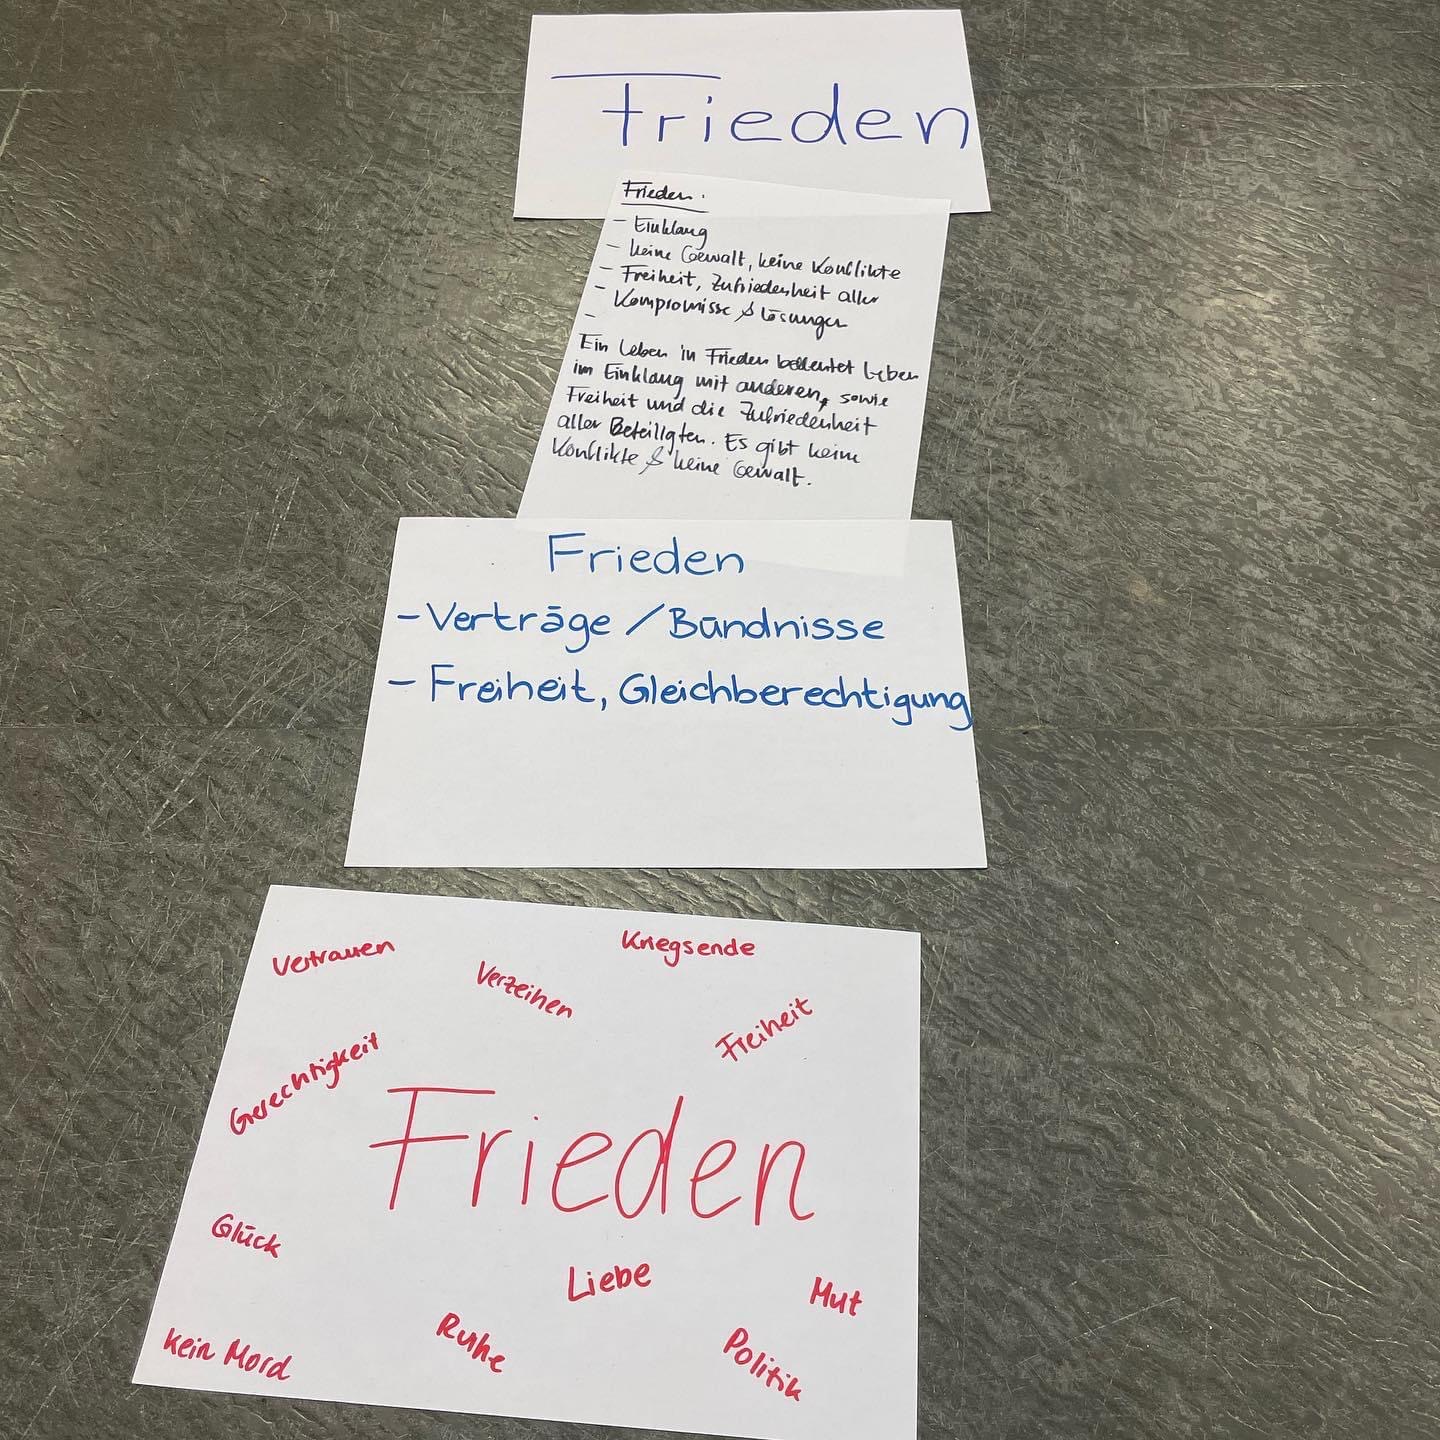 Frieden
Frieden:
- Einklang
- keine Gewalt, keine Konflikte
- Freiheit, Zufriedenheit aller
- Kompromisse & Lösungen
-
Ein Leben in Frieden bedeutet Leben
im Einklang mit anderen, sowie
Freiheit und die Zufriedenheit
aller Beteiligten. Es gibt keine
Konflikte & keine Gewalt.
Frieden
- Verträge / Bündnisse
- Freiheit, Gleichberechtigung
Vertrauen
Verzeihen
Kriegsende
Freiheit
Gerechtigkeit
Frieden
Glück
Liebe
Mut
Kein Mord
Ruhe
Politik